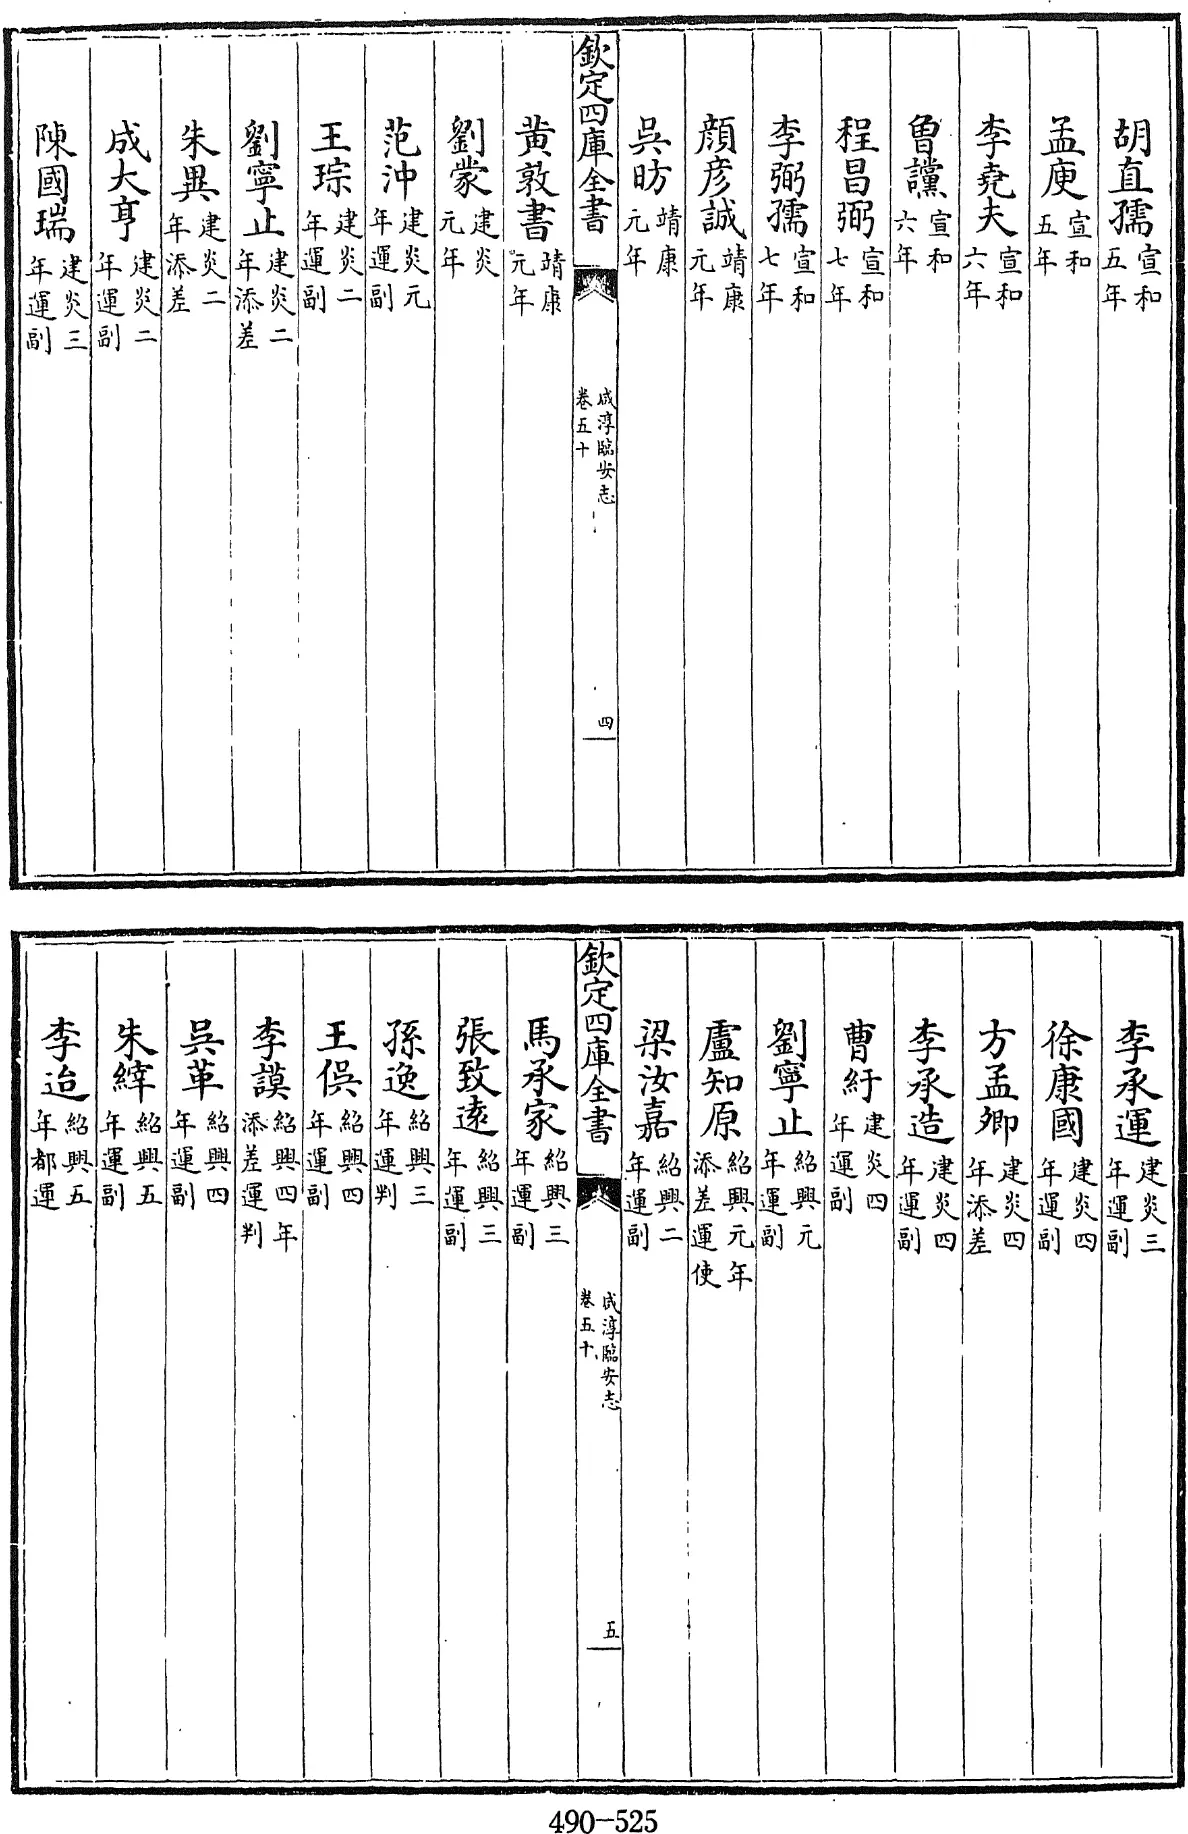 胡直孺宣和五年
孟庾宣和五年
李堯夫宣和六年
魯讜宣和六年
程昌弼宣和七年
李弼孺宣和七年
顔彦誠靖康元年
吳昉靖康元年
欽定四庫全書
咸淳臨安志
卷五十
四
黄敦書靖康元年
劉蒙建炎元年
范沖建炎元年運副
王琮建炎二年運副
劉寧止建炎二年添差
朱異建炎二年添差
成大亨建炎二年運副
陳國瑞建炎三年運副
李承運建炎三年運副
徐康國建炎四年運副
方孟卿建炎四年添差
李承造建炎四年運副
曹紆建炎四年運副
劉寧止紹興元年運副
盧知原紹興元年添差運使
梁汝嘉紹興二年運副
欽定四庫全書
咸淳臨安志
卷五十
五
馬承家紹興三年運副
張致逺紹興三年運副
孫逸紹興三年運判
王俁紹興四年運副
李謨紹興四年添差運判
吳革紹興四年運副
朱緈紹興五年運副
李迨紹興五年都運
490-525